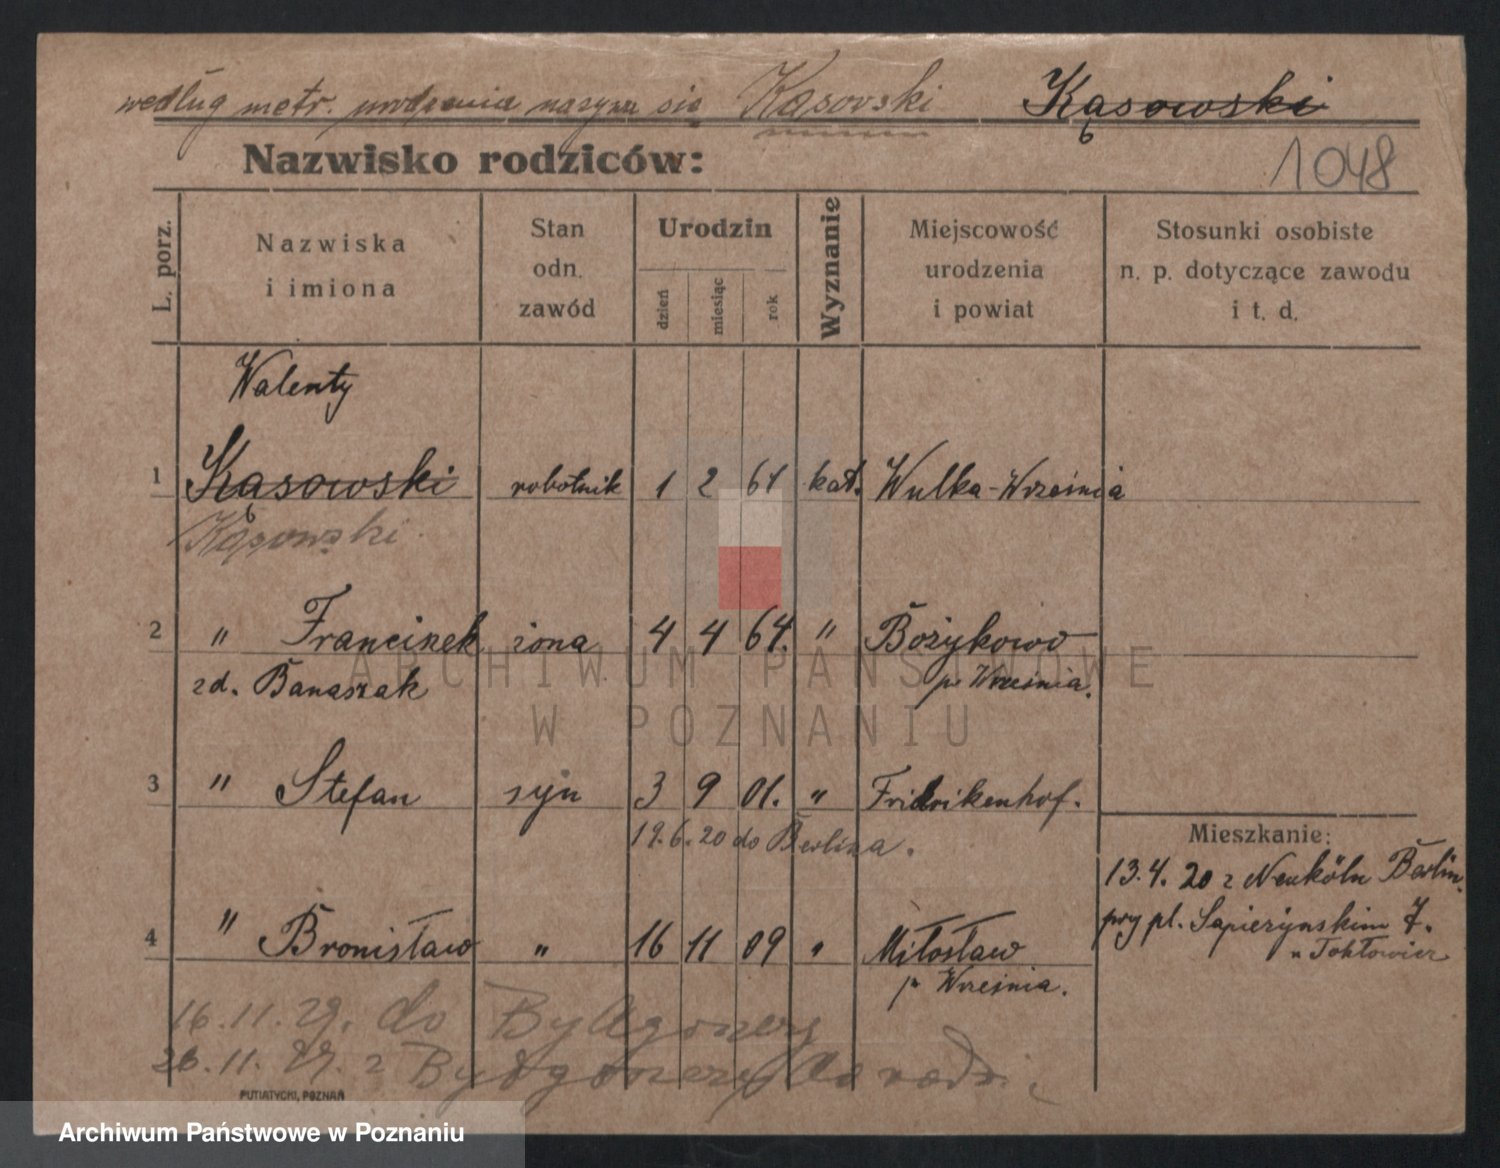 według metr. urodzenia nazywa się Kąsovski Kąsowski
Nazwisko rodziców:
1048
L. porz.
Nazwiska
i imiona
Stan
odn.
zawód
Urodzin
dzień
miesiąc
rok
Wyznanie
Miejscowość
urodzenia
i powiat
Stosunki osobiste
n. p. dotyczące zawodu
i t. d.
Walenty
1 Kąsowski robotnik 1 2 61 kat. Wulka-Września
Kąsowski.
2 " Francizek żona 4 4 64. " Bożykowo
zd. Banaszak p. Września.
ARCHIWUM PAŃSTWOWE
W POZNANIU
3 " Stefan syn 3 9 01. " Fridrikenhof.
19.6.20 do Berlina.
Mieszkanie:
13.4. 20 z Neuköln Berlin.
przy pl. Sapieżynskim 7.
4 " Bronisław " 16 11 09 " Miłosław
p. Września.
16.11.29. do Bydgoszczy
26.11.29. z Bydgoszczy do rodz.
PUTIATYCKI, POZNAŃ
Archiwum Państwowe w Poznaniu